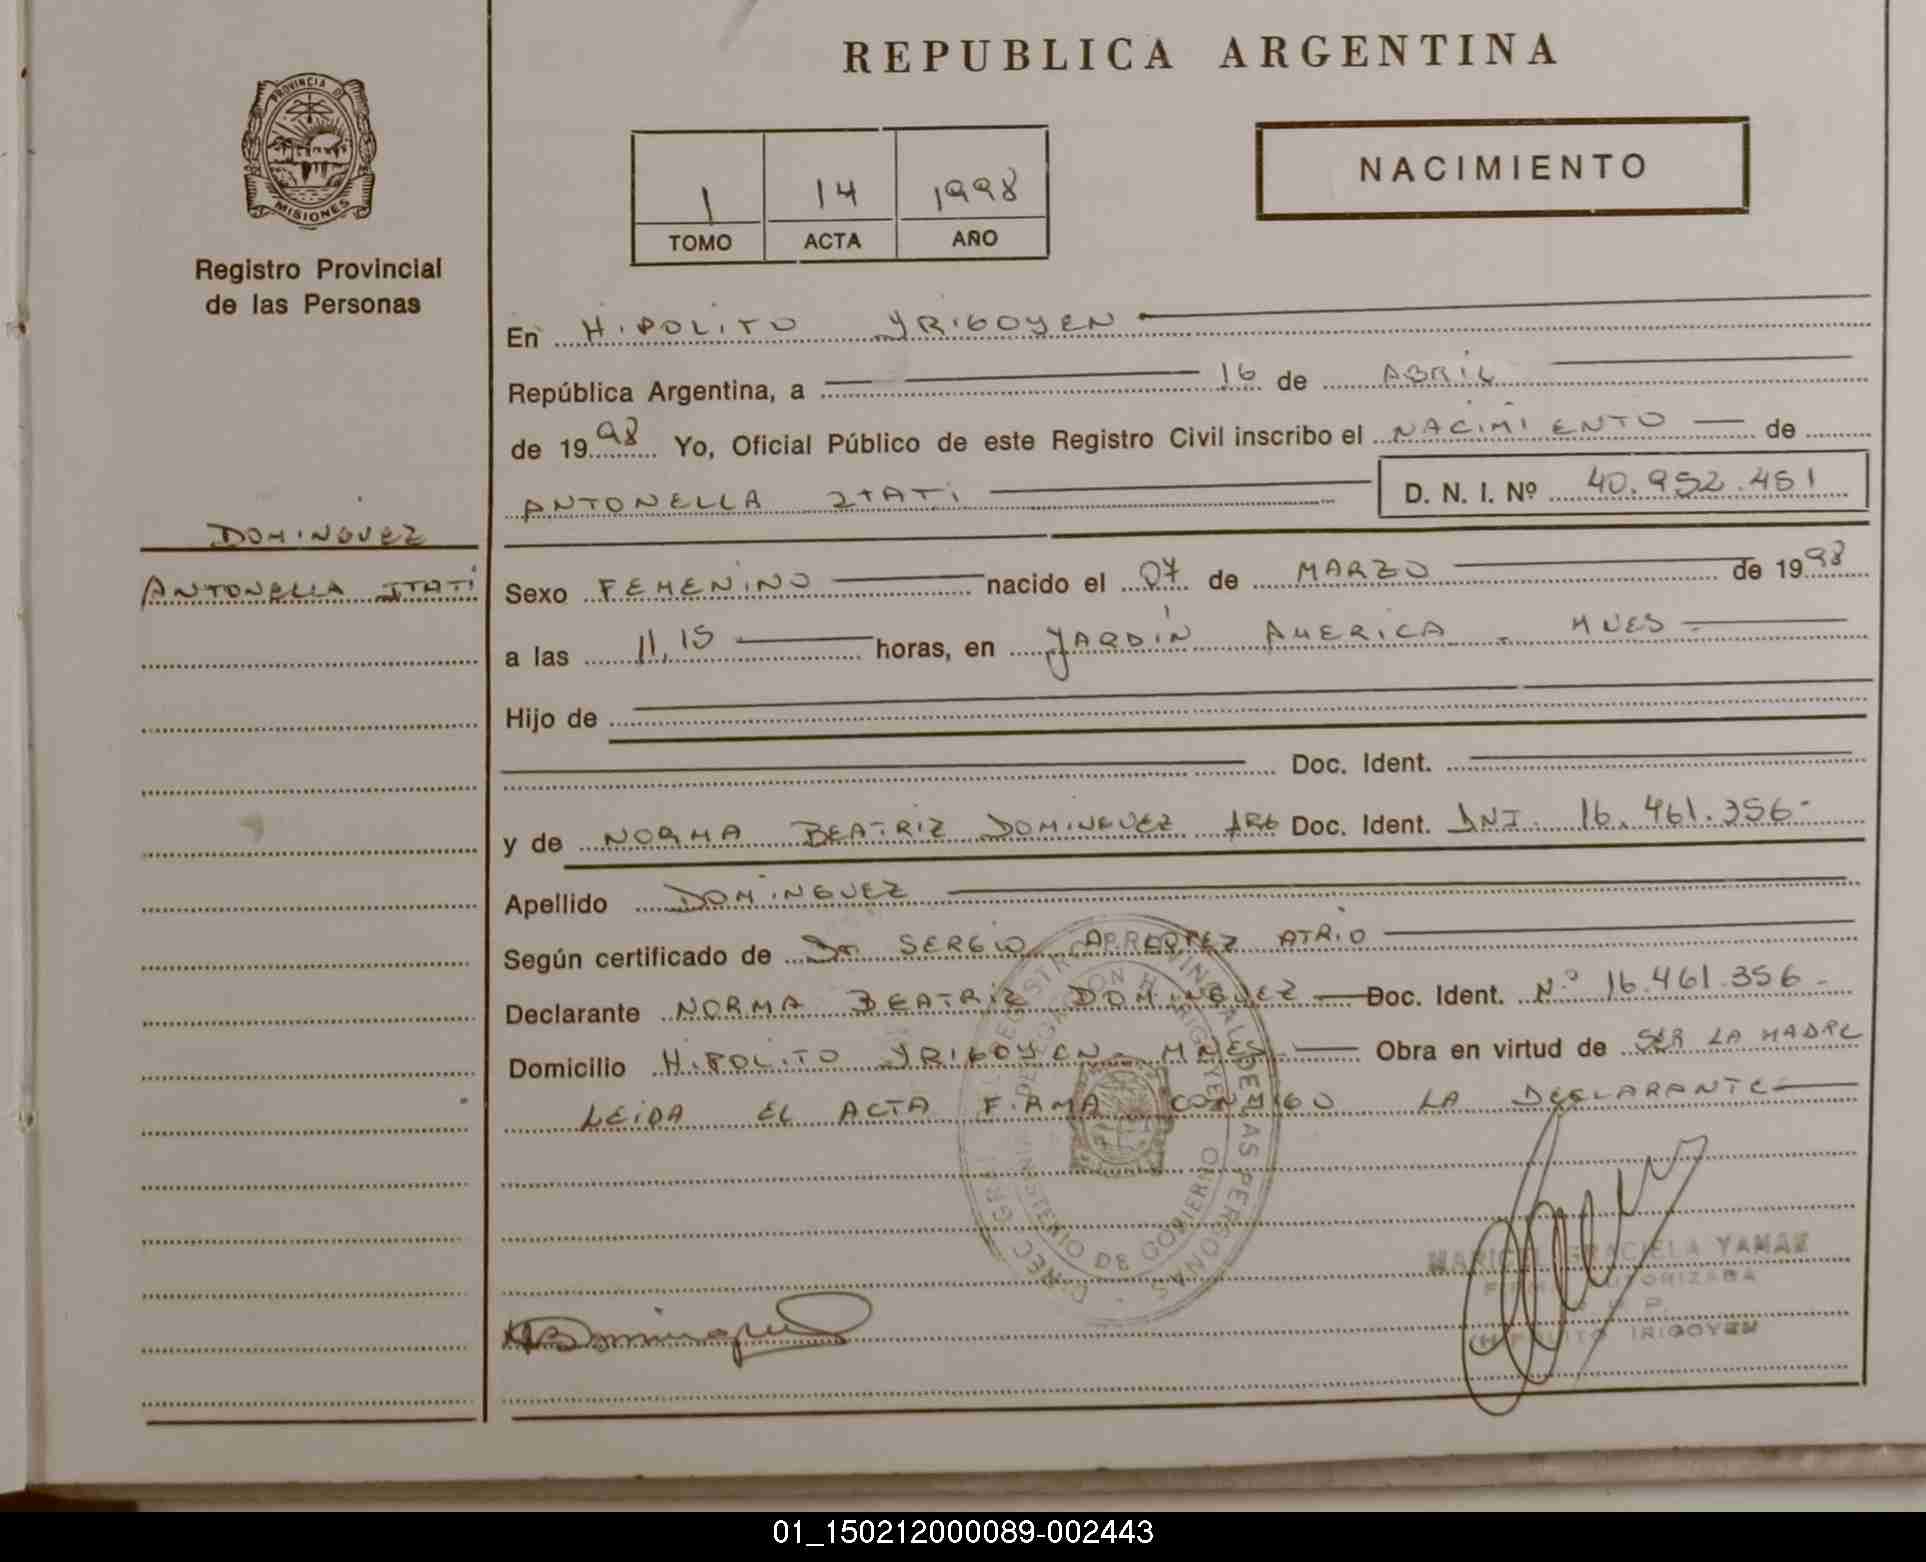 REPUBLICA ARGENTINA
PROVINCIA D
MISIONES
Registro Provincial
de las Personas
1 14 1998
TOMO ACTA AÑO
NACIMIENTO
En HIPOLITO YRIGOYEN
República Argentina, a 16 de ABRIL
de 1998 Yo, Oficial Público de este Registro Civil inscribo el NACIMIENTO de
ANTONELLA ITATI D. N. I. Nº 40.952.451
DOMINGUEZ
ANTONELLA ITATI
Sexo FEMENINO nacido el 07 de MARZO de 1998
a las 11,15 horas, en JARDIN AMERICA - MNES
Hijo de
Doc. Ident.
y de NORMA BEATRIZ DOMINGUEZ ARG Doc. Ident. DNI. 16.461.356-
Apellido DOMINGUEZ
Según certificado de Dr SERGIO ATRIO
Declarante NORMA BEATRIZ DOMINGUEZ Doc. Ident. Nº 16.461.356-
Domicilio HIPOLITO YRIGOYEN - MNES- Obra en virtud de SER LA MADRE
LEIDA EL ACTA FIRMA CONMIGO LA DECLARANTE
MINISTERIO DE GOBIERNO
GRACIELA YAMAN
AUTORIZADA
HIPOLITO IRIGOYEN
01_150212000089-002443